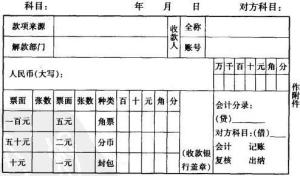 科目： 年 月 日 对方科目：
款项来源 收款人 全称
解款部门 账号
人民币(大写)： 万 千 百 十 元 角 分
票面 张数 票面 张数 种类 百 十 元 角 分 会计分录：
一百元 五元 角票 (贷)
五十元 二元 分币 对方科目：(借)
十元 一元 封包 (收款银行盖章) 会计 记账
复核 出纳
作附件